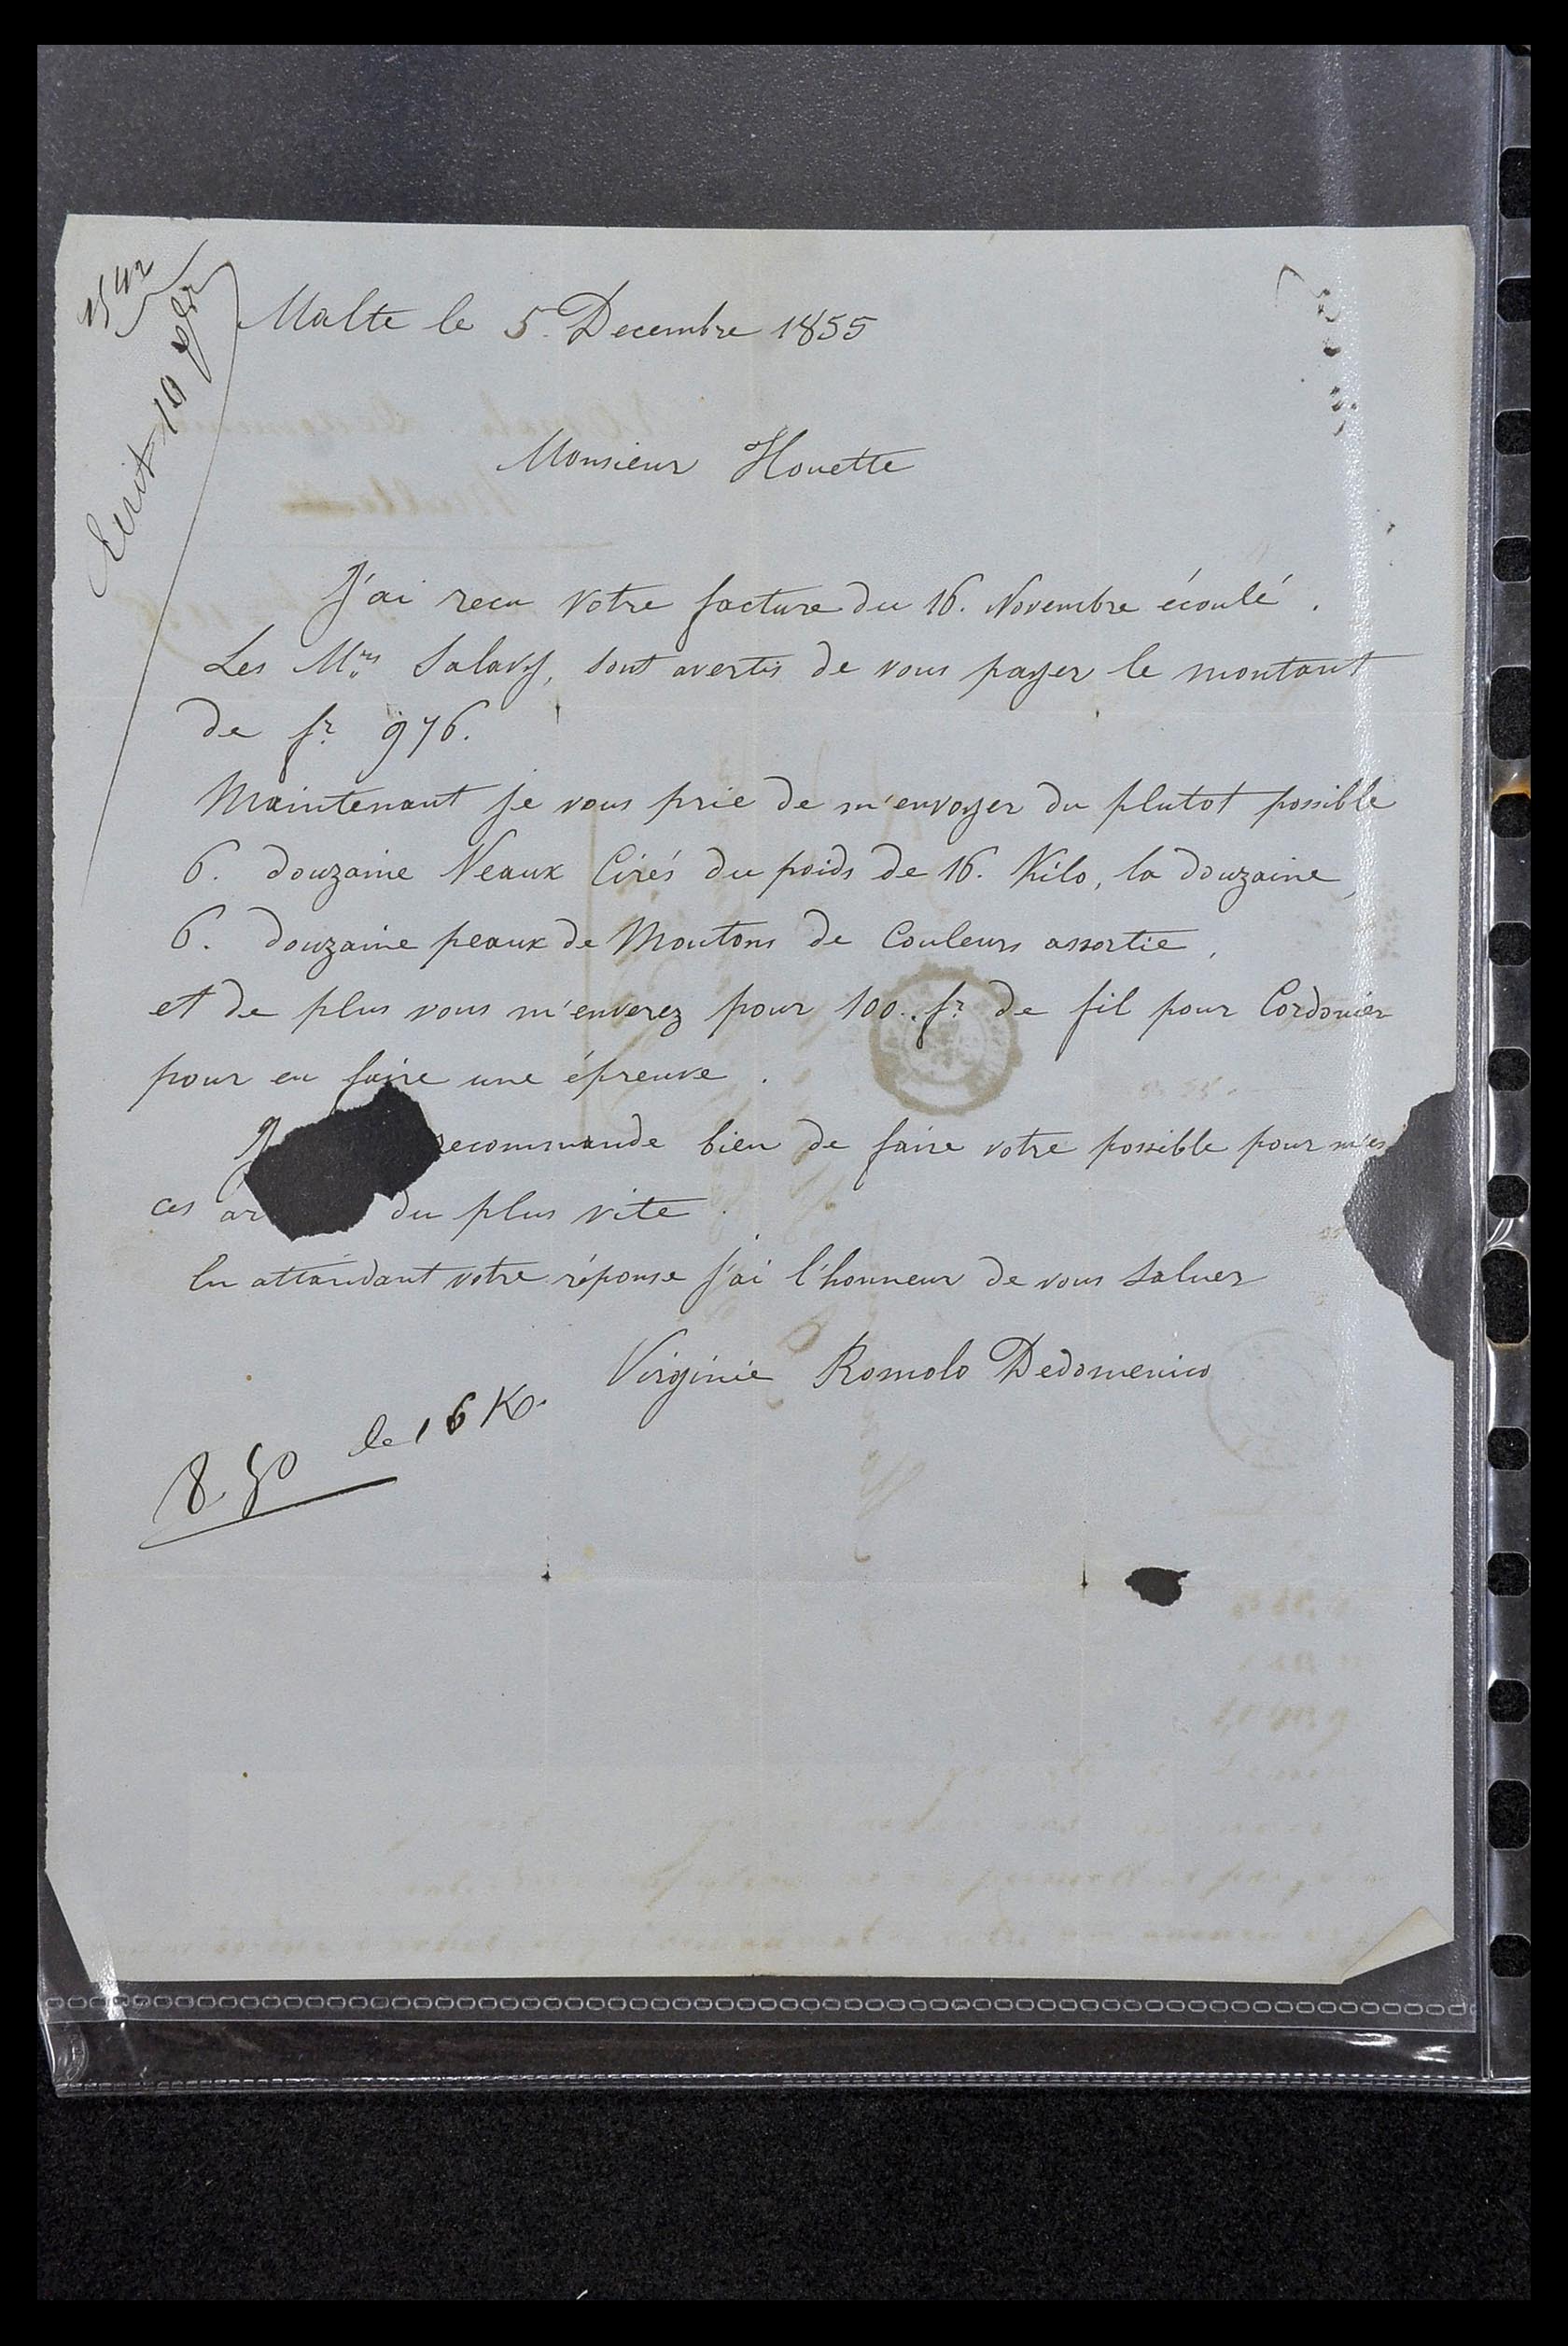 1542
Ecrit 10
Malte le 5. Decembre 1855
Monsieur Houette
J'ai recu votre facture du 16. Novembre écoulé.
Les Mrs Salavy, sont avertis de vous payer le montant
de fr. 976.
Maintenant je vous prie de m'envoyer du plutot possible
6. douzaine Veaux Cirés du poids de 16. Kilo, la douzaine,
6. douzaine peaux de Moutons de Couleurs assortie,
et de plus vous m'enverez pour 100.. fr. de fil pour Cordonier
pour en faire une épreuve.
recommande bien de faire votre possible pour
ces du plus vite.
En attandant votre réponse j'ai l'honneur de vous saluer
Virginie Romolo Dedomenico
8.50 le 16 Ko.